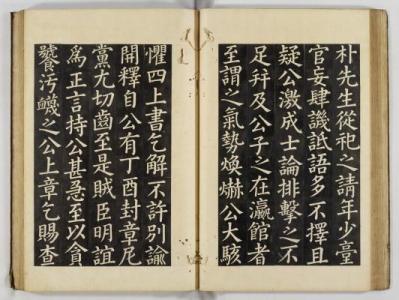 朴先生從祀之請年少臺
官妄肆譏詆語多不擇且
疑公激成士論排擊之不
足幷及公子之在瀛館者
至謂之氣勢煥爀公大駭
懼四上書乞解不許別諭
開釋自公有丁酉封章尼
黨尤切齒至是賊臣明誼
爲正言持公甚急至以貪
饕汚衊之公上章乞賜查